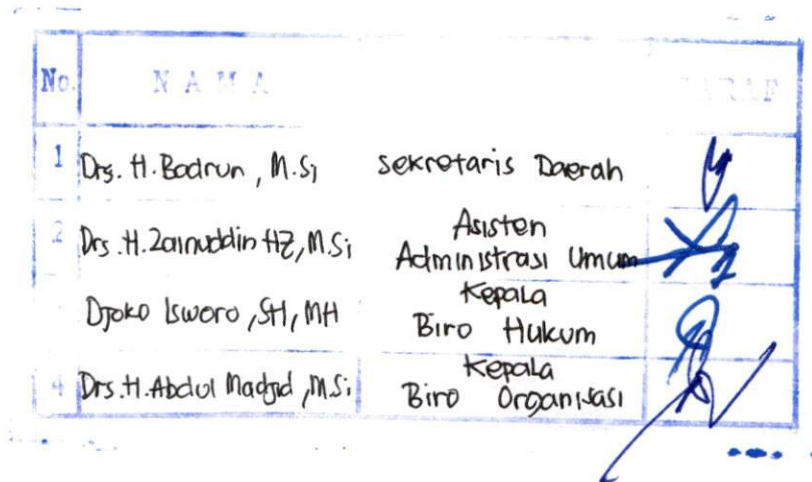 No. NAMA PARAF
1 Drs. H. Badrun, M.Si Sekretaris Daerah
2 Drs. H. Zainuddin HZ, M.Si Asisten
Administrasi Umum
Djoko Isworo, SH, MH Kepala
Biro Hukum
4 Drs. H. Abdul Madjid, M.Si Kepala
Biro Organisasi